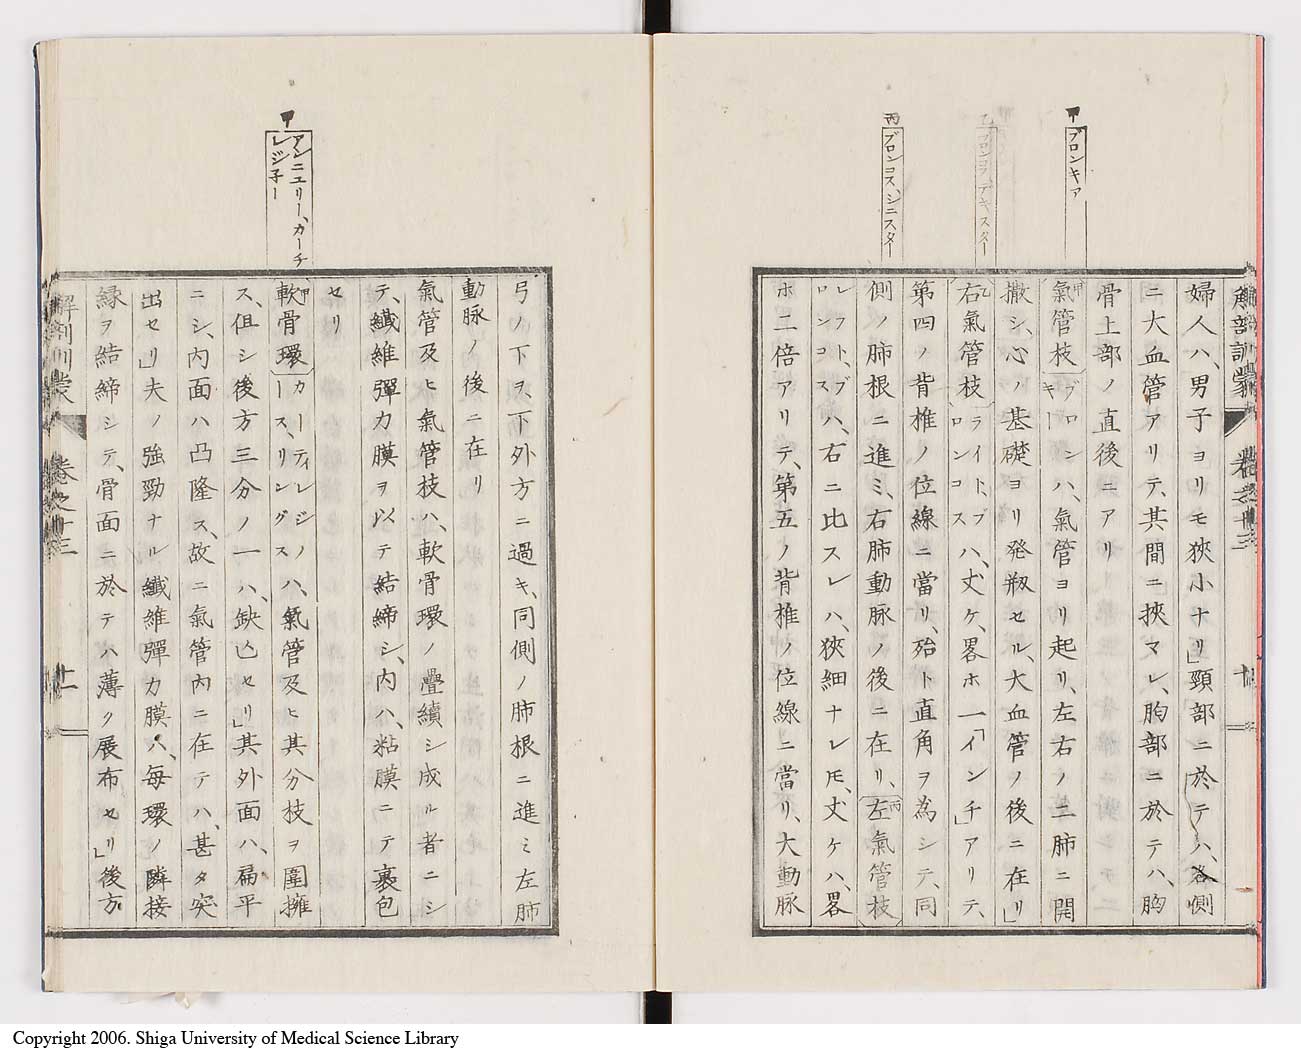 甲 ブロンキア
乙 ブロンコス、デキスター
丙 ブロンコス、シニスター
婦人ハ、男子ヨリモ狹小ナリ」頸部ニ於テハ、各側
ニ大血管アリテ、其間ニ挾マレ、胸部ニ於テハ、胸
骨上部ノ直後ニアリ
甲氣管枝 ブロンキー ハ、氣管ヨリ起リ、左右ノ二肺ニ開
撒シ、心ノ基礎ヨリ発靱セル、大血管ノ後ニ在リ」
乙右氣管枝 ライト、ブロンコス ハ、丈ケ、畧ホ一「インチ」アリテ、
第四ノ背椎ノ位線ニ當リ、殆ト直角ヲ為シテ、同
側ノ肺根ニ進ミ、右肺動脈ノ後ニ在リ、丙左氣管枝
レフト、ブロンコス ハ、右ニ比スレハ、狹細ナレ𪜈、丈ケハ、畧
ホ二倍アリテ、第五ノ背椎ノ位線ニ當リ、大動脈
解剖訓蒙 卷之十三 十
甲 アンニュリー、カーチレジ子ー
弓ノ下ヲ、下外方ニ過キ、同側ノ肺根ニ進ミ左肺
動脈ノ後ニ在リ
氣管及ヒ氣管枝ハ、軟骨環ノ疊續シ成ル者ニシ
テ、纎維彈力膜ヲ以テ結締シ、内ハ、粘膜ニテ裹包
セリ
甲軟骨環 カーティレジノース、リングス ハ、氣管及ヒ其分枝ヲ圍擁
ス、但シ後方三分ノ一ハ、缺亾セリ」其外面ハ、扁平
ニシ、内面ハ凸隆ス、故ニ氣管内ニ在テハ、甚タ突
出セリ」夫ノ強勁ナル纎維彈力膜ハ、毎環ノ隣接
縁ヲ結締シテ、骨面ニ於テハ薄ク展布セリ」後方
解剖訓蒙 卷之十三 十一
Copyright 2006. Shiga University of Medical Science Library